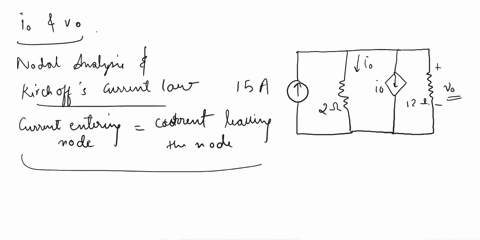 io & vo
Nodal Analysis &
Kirchoff's current law
Current entering = current leaving
node the node
15 A
io
2 Ω
io
+
vo
-
12 Ω